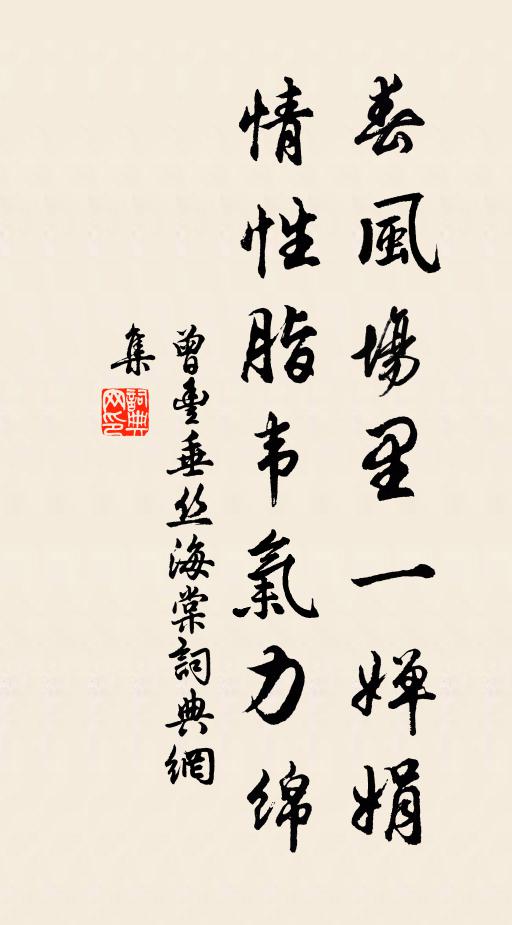 春風場里一嬋娟
情性脂韦氣力綿
曾豐垂丝海棠詞典網
集
詞典
网印